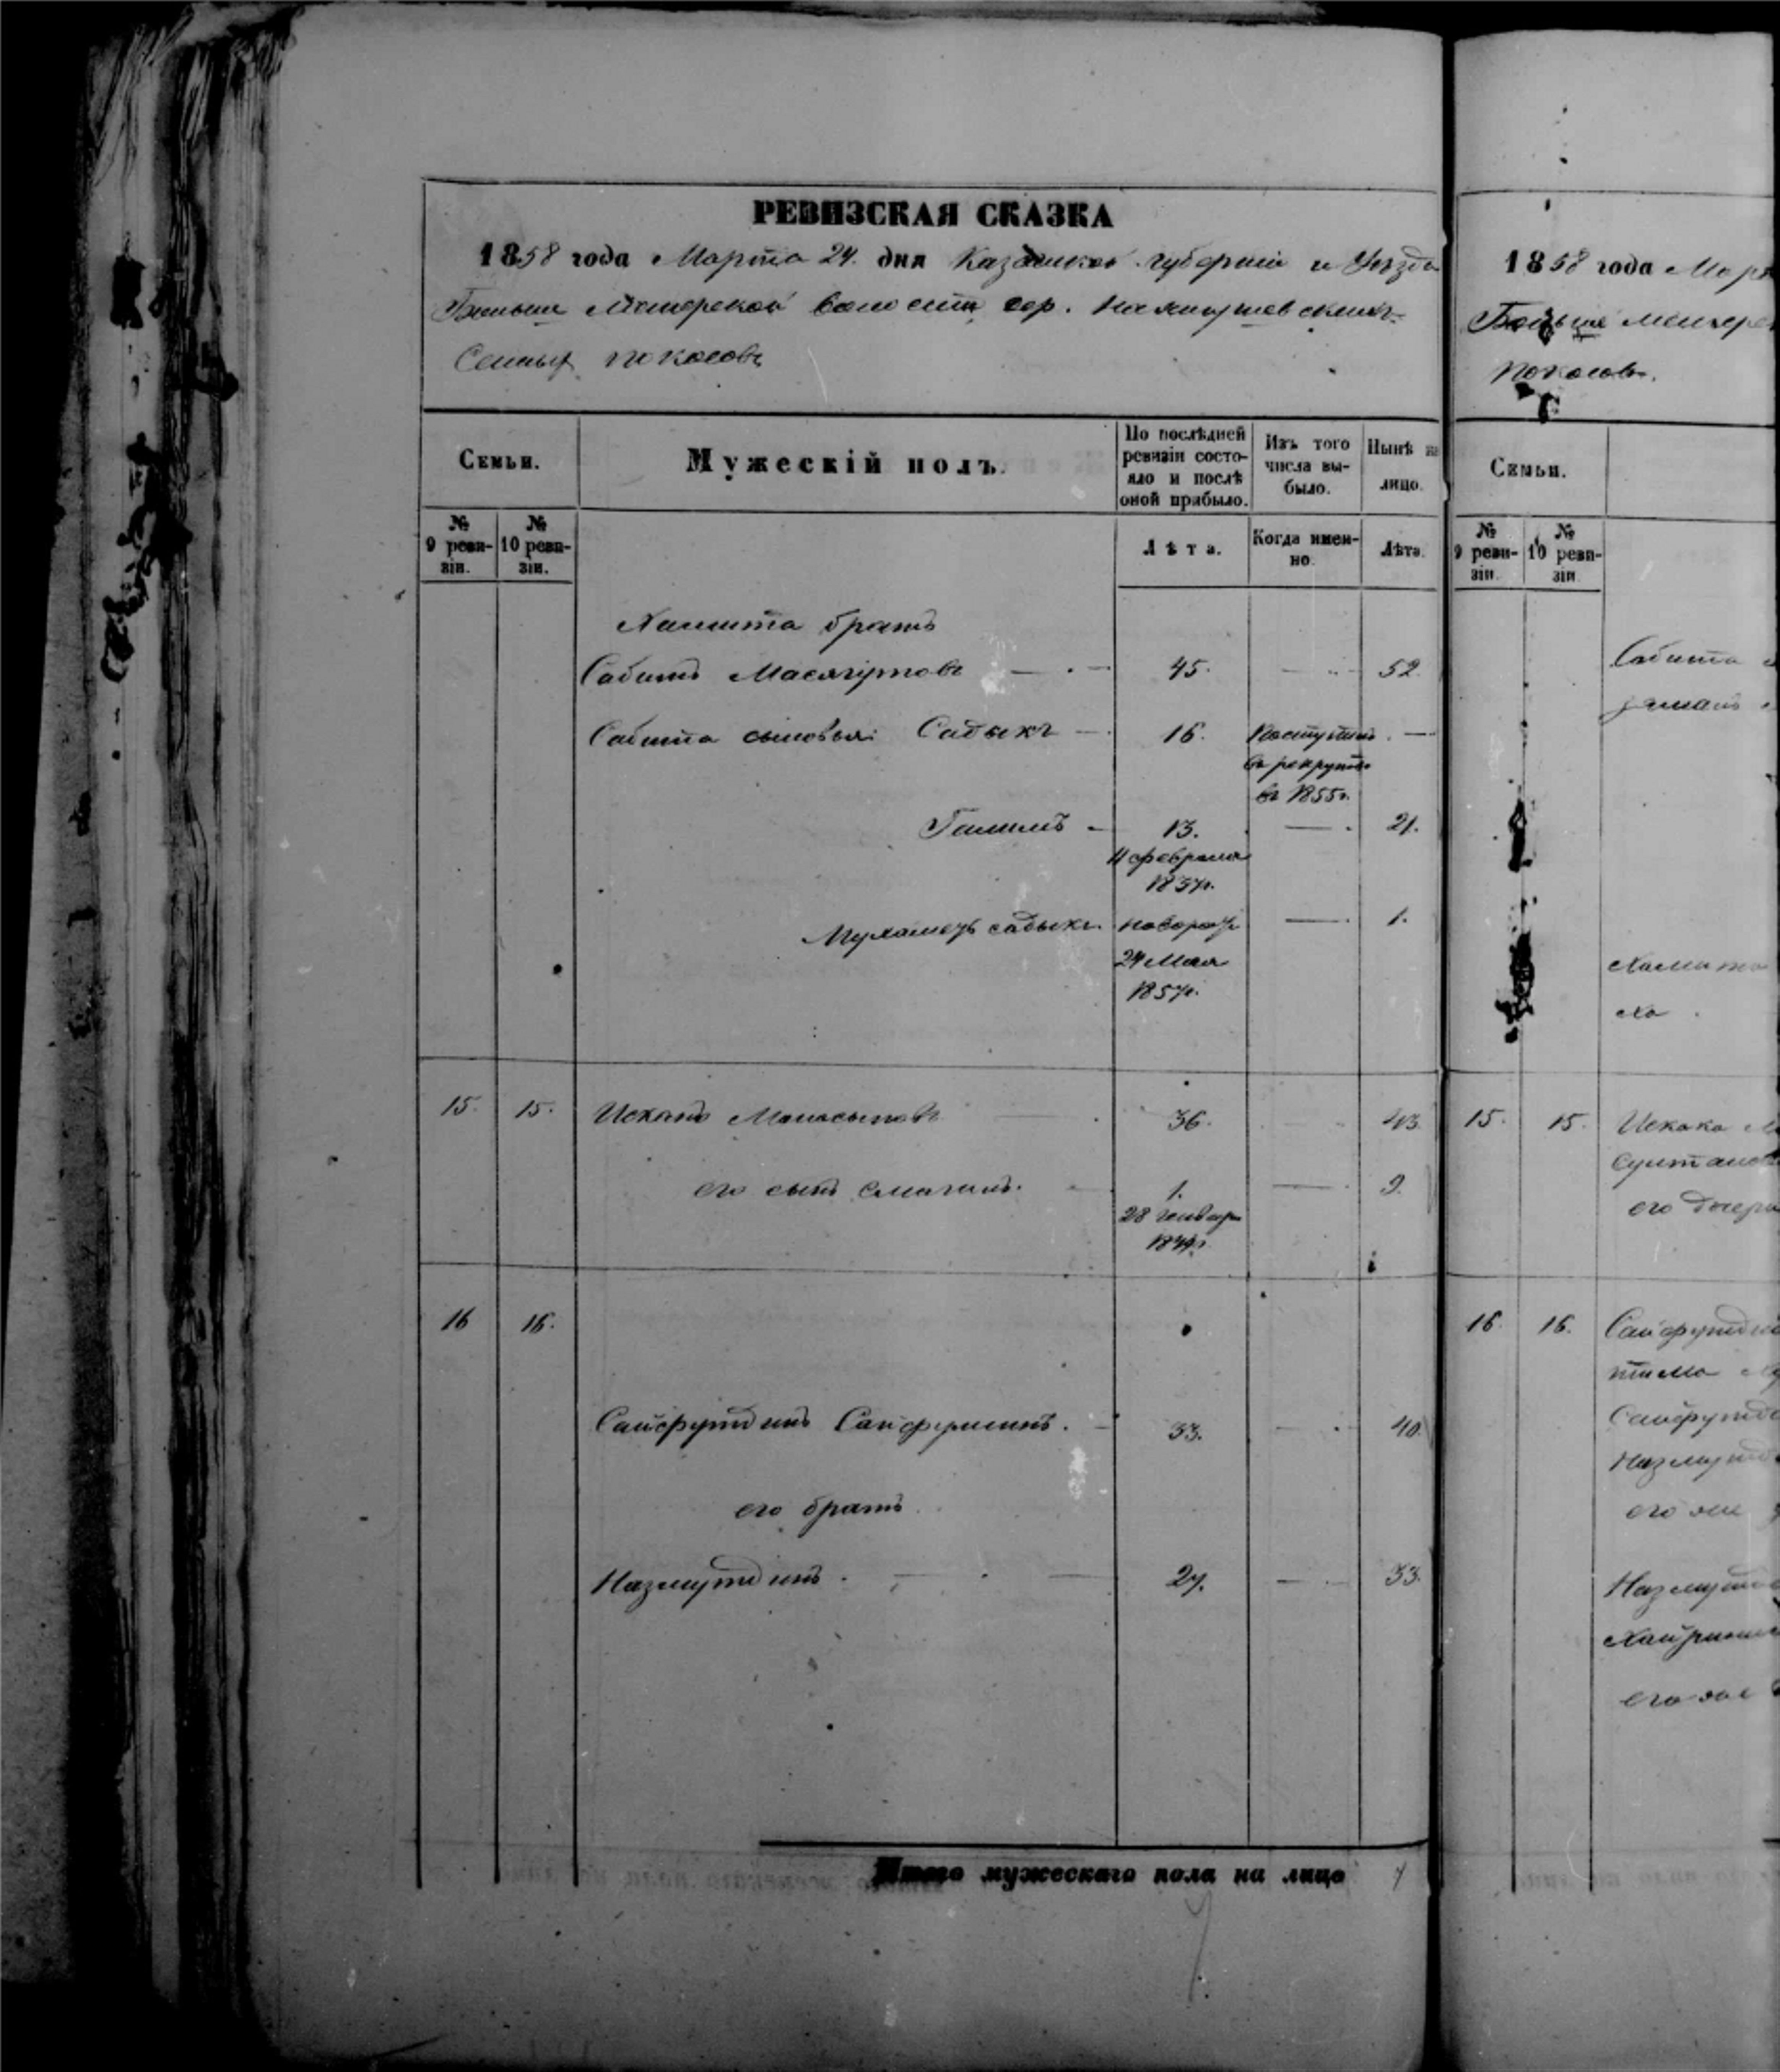 РЕВИЗСКАЯ СКАЗКА
1858 года Марта 24. дня Казанской губерніи и Уѣзда
Больше Менгерской волости дер.
Семьи покосовъ
Семьи.
Мужескій полъ.
По послѣдней ревизіи состояло и послѣ оной прибыло.
Изъ того числа выбыло.
Нынѣ на лицо.
№ 9 ревизіи.
№ 10 ревизіи.
Лѣта.
Когда именно.
Лѣта.
Хамита братъ
Сабитъ Масягутовъ 45. 52.
Сабита сыновья: Садыкъ 16. Поступилъ
въ рекруты
въ 1855г.
Галимъ 13. 21.
11 февраля
1837г.
Мухамедъ садыкъ. новорож 1.
24 Мая
1857г.
15. 15. Исхакъ 36. 43.
его сынъ Смагилъ. 1. 9.
28 Генвар
1849г.
16 16.
Сайфутдинъ Сайфуллинъ. 33. 40.
его братъ
Назмутдинъ. 27. 33.
Итого мужескаго пола на лицо 7
7.
1858 года Мар
Больше Менгере
покосовъ.
Семьи.
№ 9 ревизіи.
№ 10 ревизіи.
Сабита
Хамита
15. 15. Исхака
его дочери
16. 16. Сайфутди
Сайфутд
Назмутд
его же
Назмутд
его же